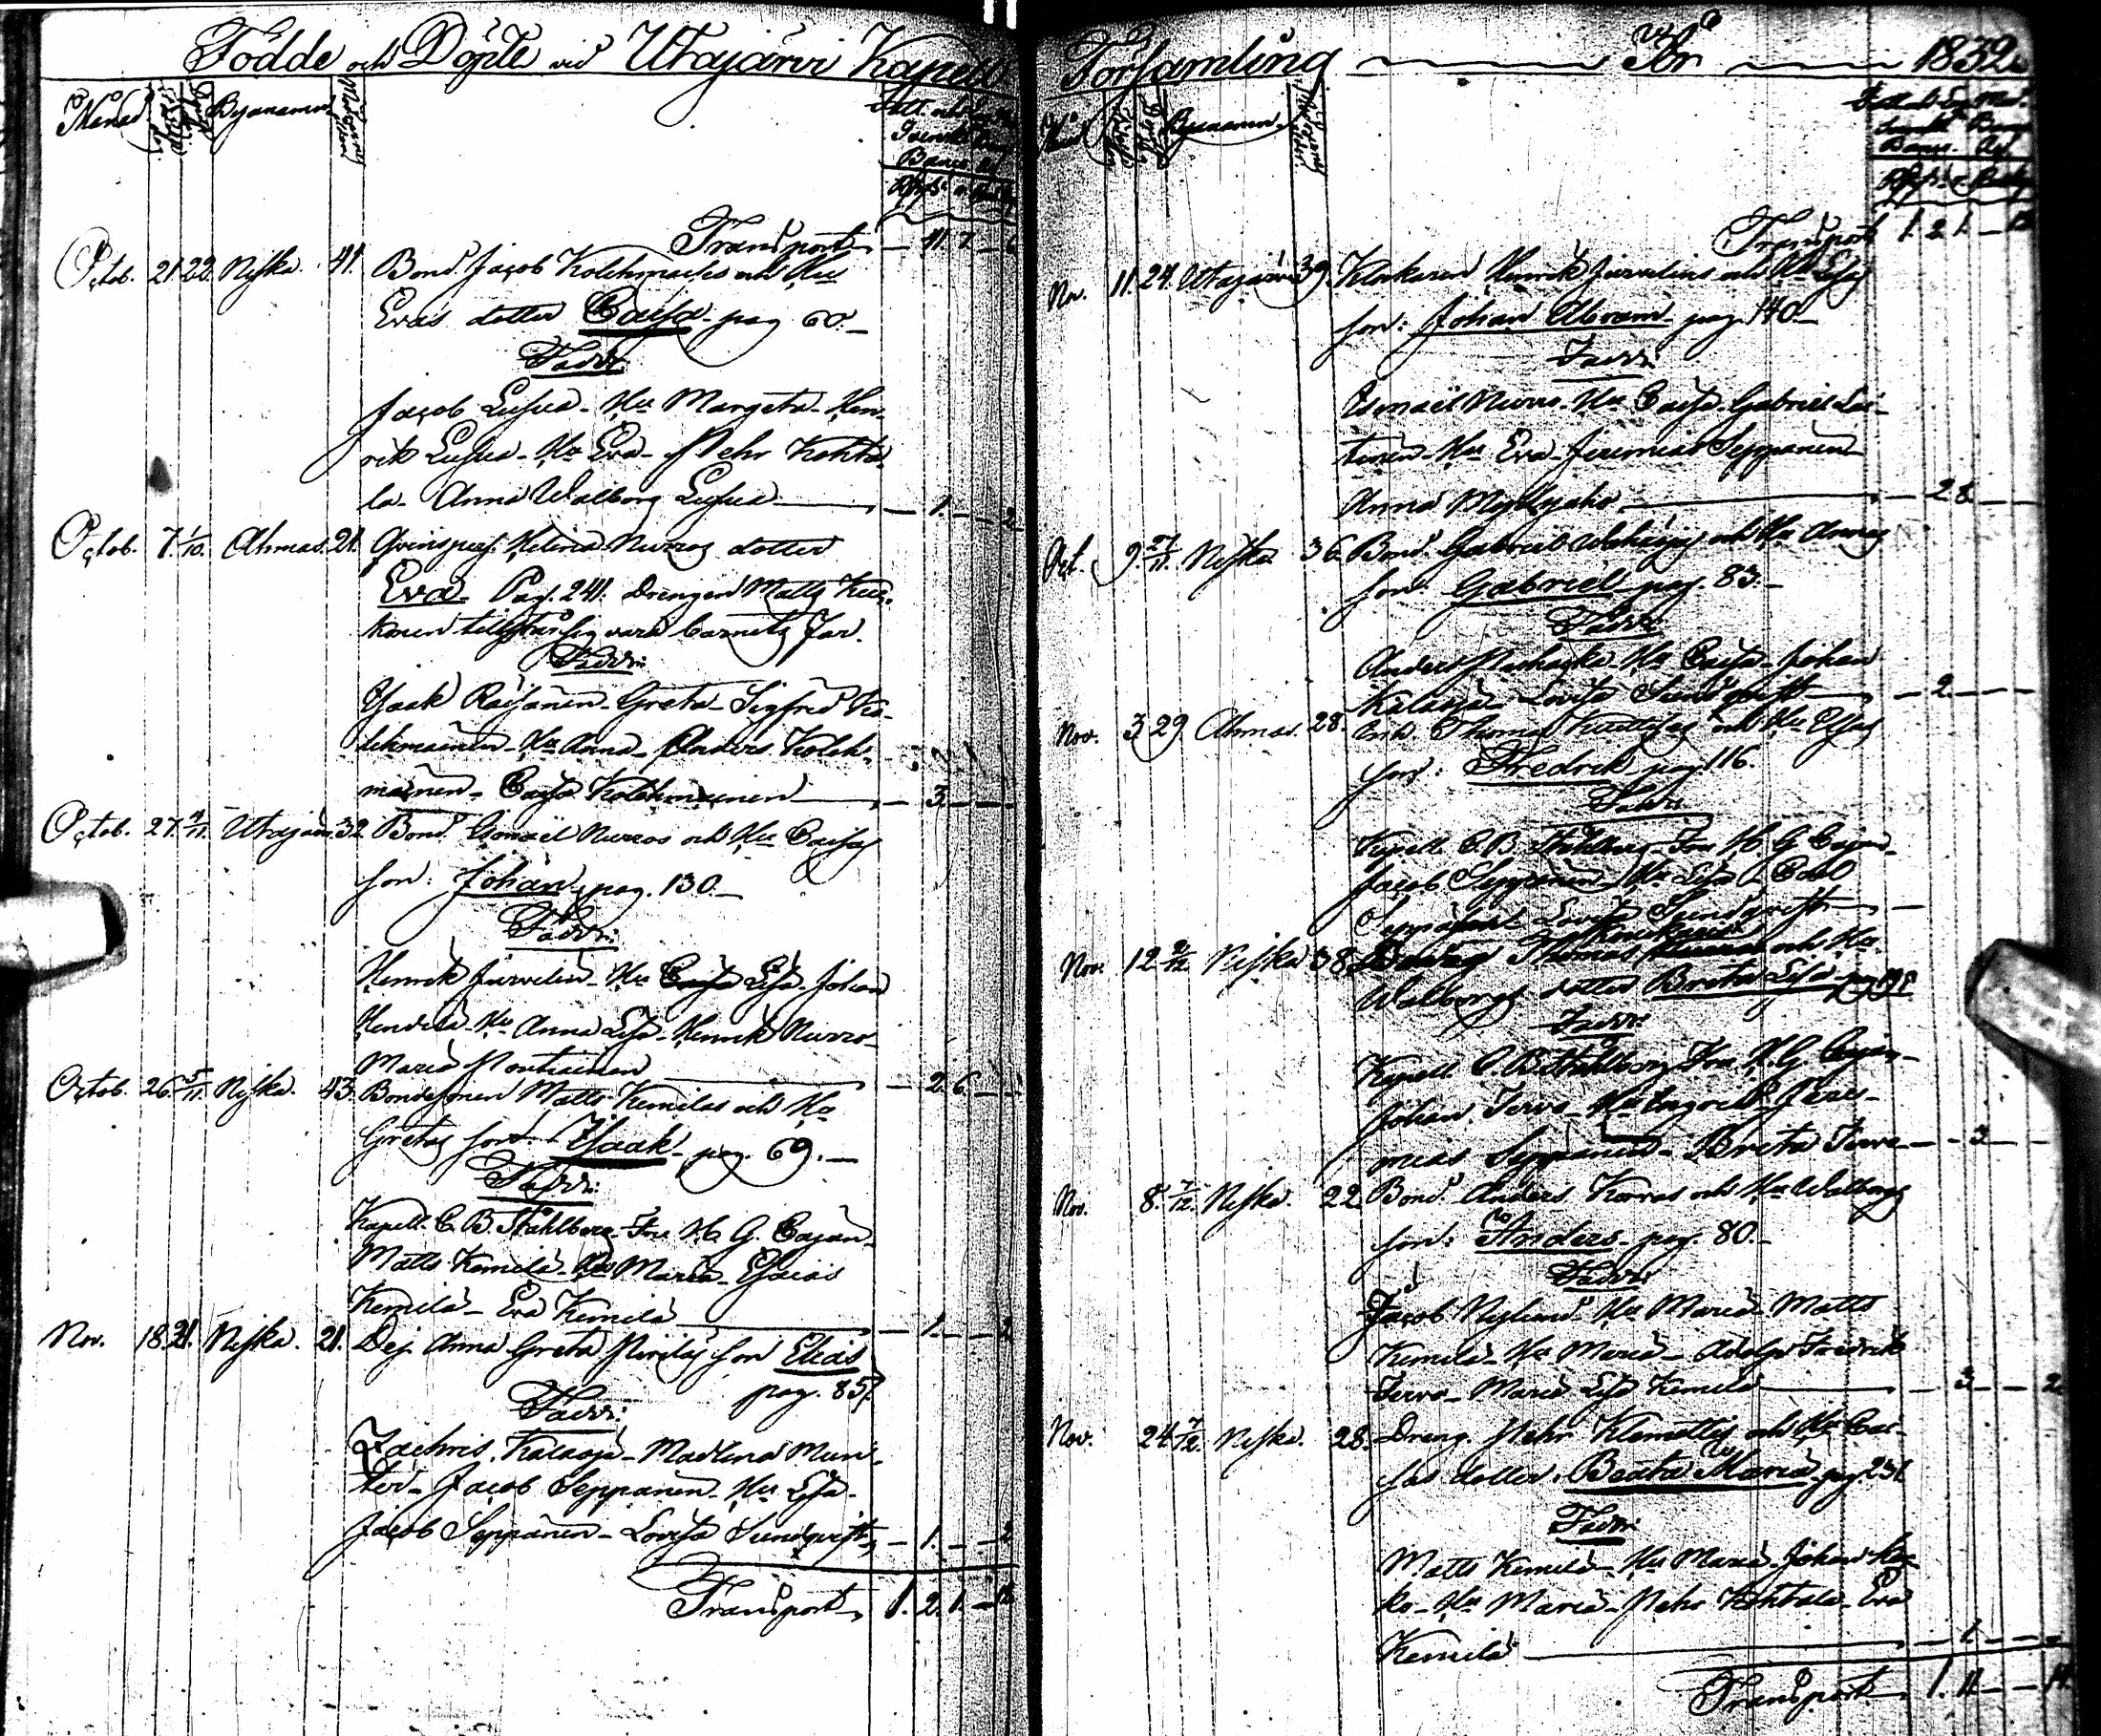 Födde och Döpte vid Utajärvi Kapell
Månad
Byanamn
Transport 41. 7. 6
Octob. 21. 22. Niska. 41. Bond. Jacob Kolehmaines och Hus
Evas dotter Caisa pag. 60.
Faddr:
Jacob Lusua - Hu Margeta - Hen-
rik Lusua - Hu Eva - Pehr Kohta-
la - Anna Walborg Lusua 1. 2
Octob. 7. 1/10. Ahmas. 21. Qvinspers. Helena Nurros dotter
Eva. Pag. 241. Drengen Matts
konen tillstår sig vara barnets Far.
Faddr:
Isaak Räisänen - Greta - Sigfred Ko-
lehmainen - Hu Anna - Anders Koleh-
mainen - Caisa Kolehmainen 3.
Octob. 27. 4/11. Utajärv. 32. Bond. Ismaël Nurros och Hu Caisas
son: Johan pag. 130.
Faddr:
Henrik Jurvelin - Hu Lisa - Johan
Hendela - Hu Anna Lisa - Henrik Nurro -
Maria Pontiainen 2. 6.
Octob. 26. 5/11. Niska. 43. Bondesonen Matts Kemilas och Hu
Gretas son: Isaak pag. 69.
Faddr:
Kapell. C. B. Ståhlberg - Fru H. G. Cajan -
Matts Kemilä - Hu Maria - Esaias
Kemilä - Eva Kemilä 1. 2
Nov. 18. 21. Niska. 21. Pig. Anna Greta Pirilas son Elias
pag. 857
Faddr:
Zachris Kalaoja - Madlena Mun-
ter - Jacob Seppänen - Hu Lisa -
Jacob Seppänen - Lovisa Sundqvist 1. 2
Transport 1. 2. 1. 12
Församling År 1832.
Byanamn
Transport 1. 2. 1. 12
Nov. 11. 24. Utajärvi 39. Klockaren Henrik Jurvelins och Hu Lisas
son: Johan Abram pag. 140.
Faddr:
Ismaël Nurro - Hu Caisa - Gabriel Lai-
tinen - Hu Eva - Jeremias Seppänen
Anna Myllyaho 28
Oct. 9. Niska 36. Bond. Gabriel och Hu Annas
son: Gabriel pag. 83.
Faddr:
Anders - Hu Caisa - Johan
Kalaoja - Lovisa Sundqvist 2.
Nov. 3. 29. Ahmas. 28. Thomas och Hu
son: Fredrik pag. 116.
Faddr:
Kapell. C. B. Ståhlberg - Fru H. G. Cajan -
Jacob Seppänen - Hu Lisa - Carl
Seppänen - Lovisa Sundqvist
Nov. 12. 2/12. Niska 38. Thomas och Hu
Walborgs dotter Breta Lisa
Faddr:
Kapell. C. B. Ståhlberg - Fru H. G. Cajan -
Johan Tervo - Hu Ingrid - Jere-
mias Seppänen - Breta Tervo 3.
Nov. 8. 7/12. Niska. 22. Bond. Anders Korvas och Hu Walborgs
son: Anders pag. 80.
Faddr:
Jacob Nylund - Hu Maria - Matts
Kemilä - Hu Maria - Adolf Fredrik
Tervo - Maria Lisa Kemilä 3. 2
Nov. 24. 7/12. Niska. 28. Dreng. Pehr Klemettis och Hu Cai-
sas dotter: Beata Maria pag. 231
Faddr:
Matts Kemilä - Hu Maria - Johan
ko - Hu Maria - Pehr Kohtala - Eva
Kemilä 1.
Transport 1. 11. 14